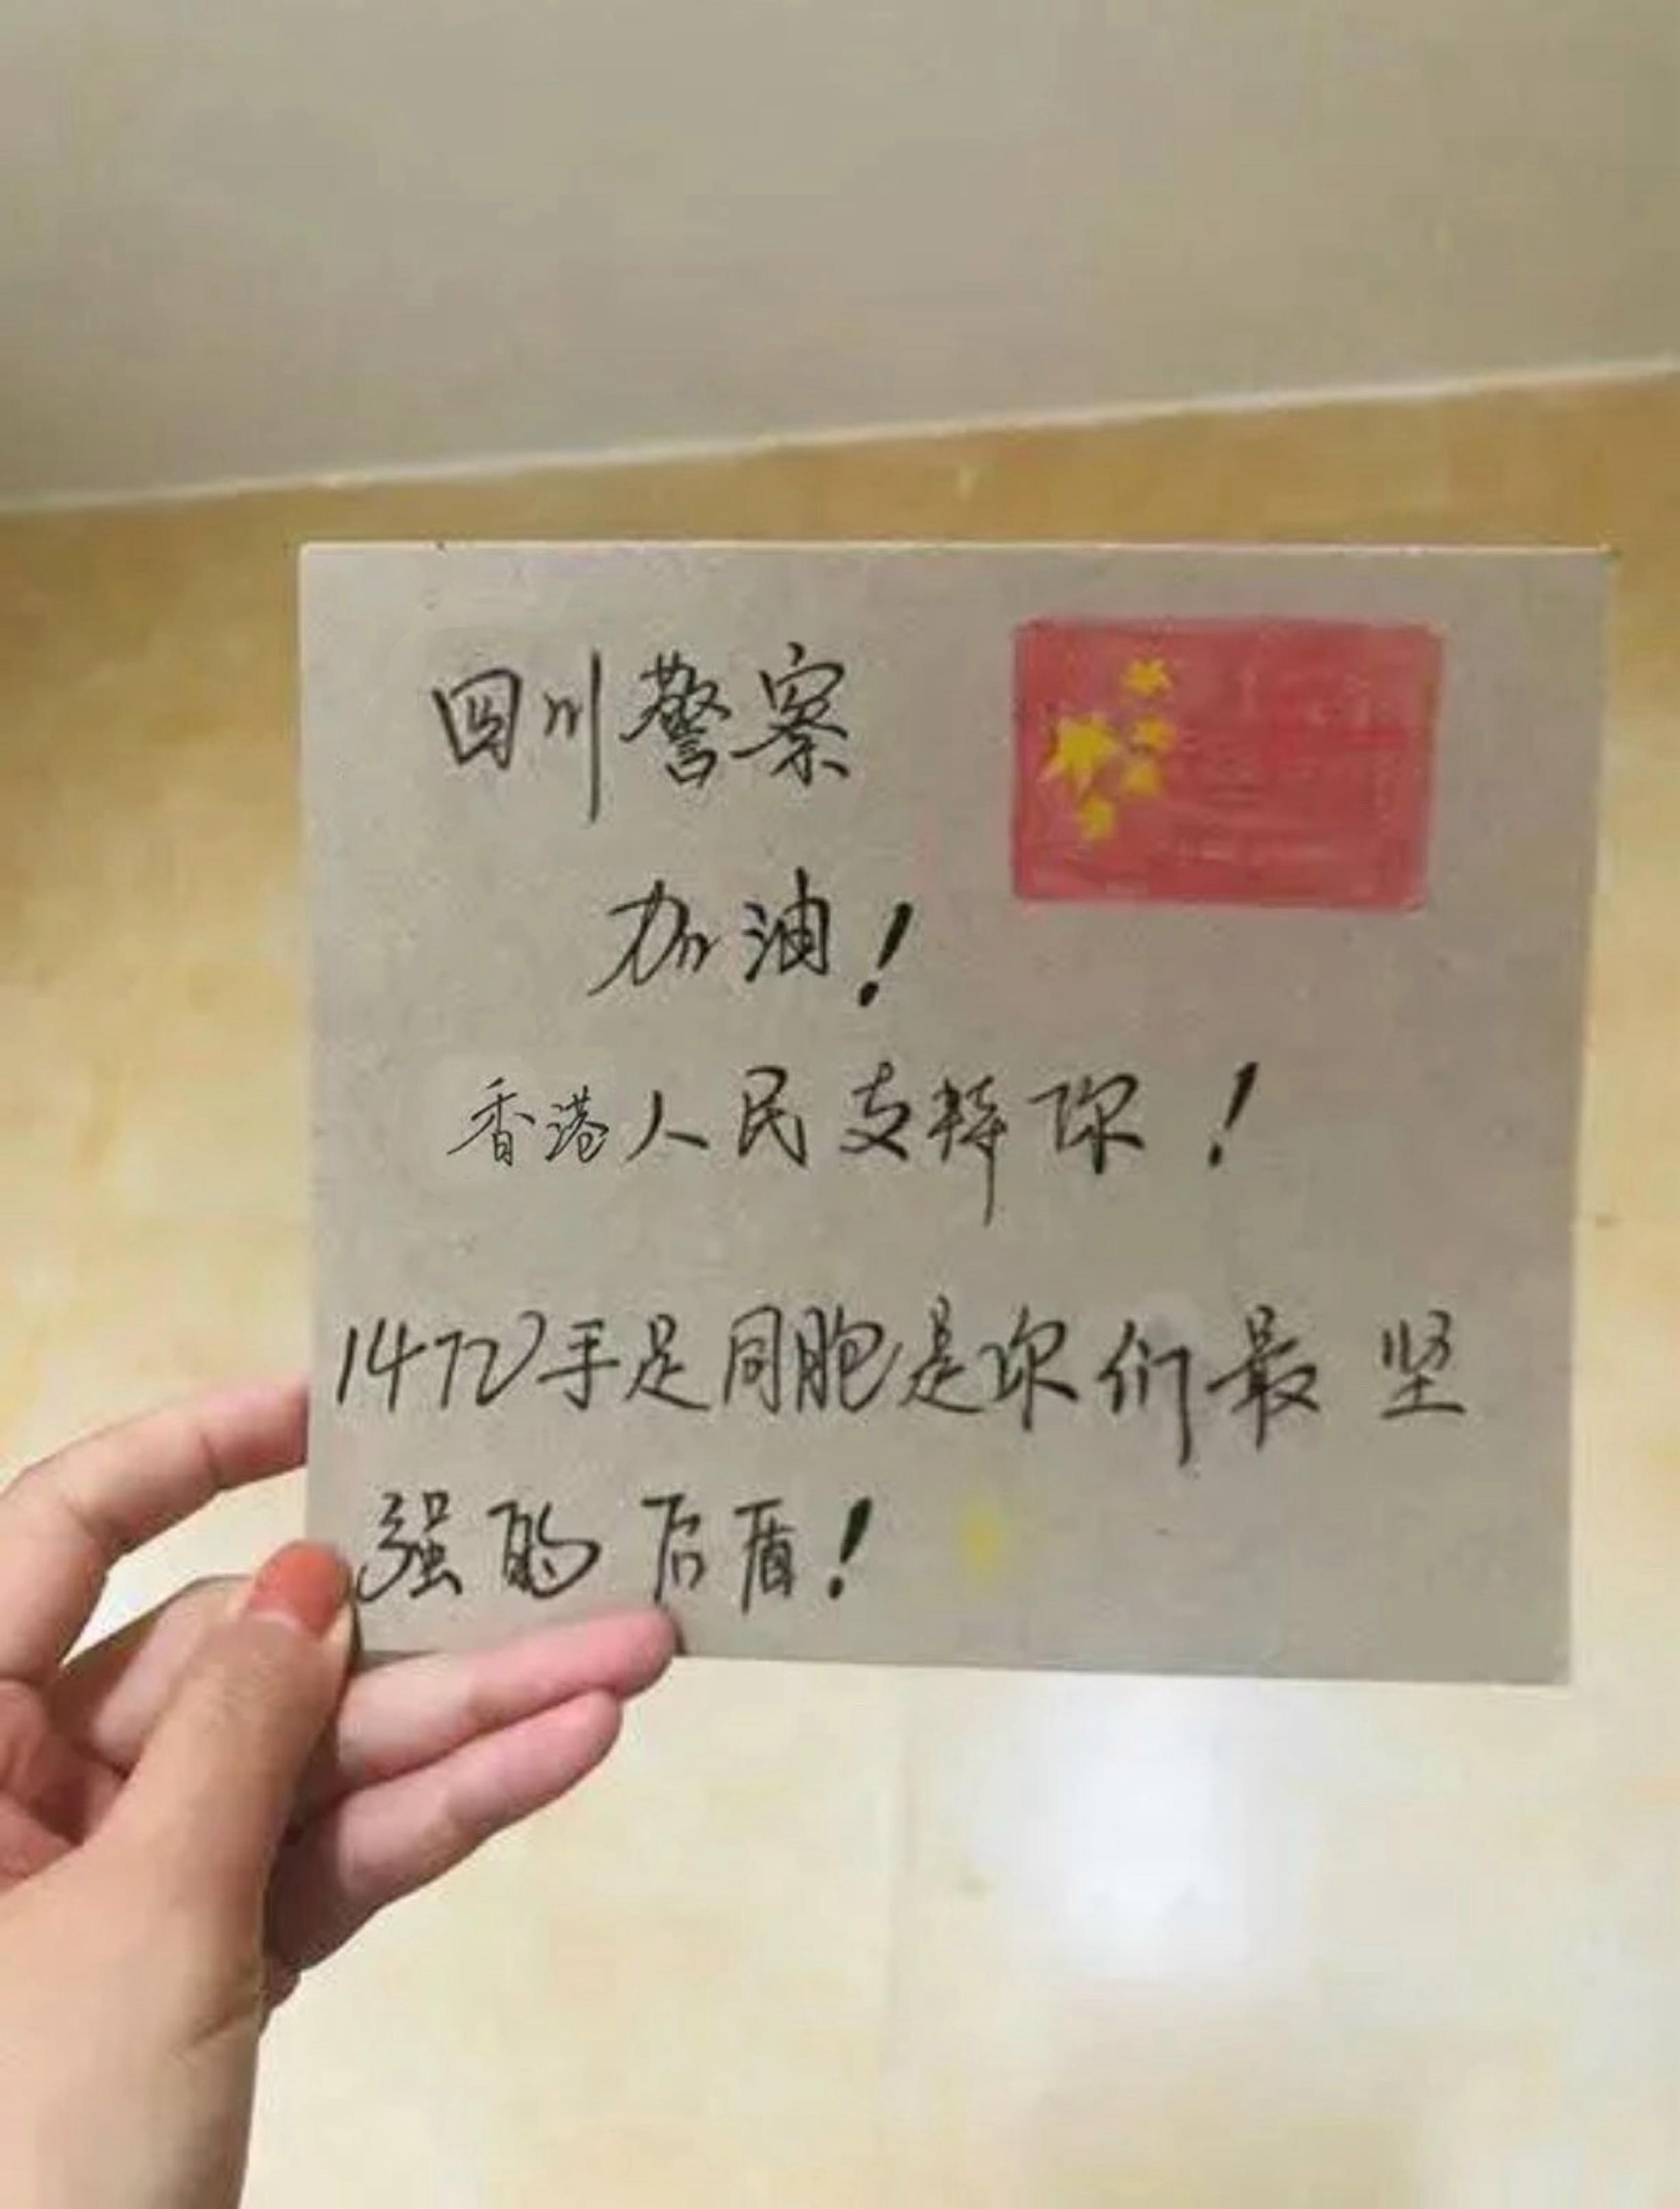 四川警察
加油！
香港人民支持你！
14亿手足同胞是你们最坚
强的后盾！